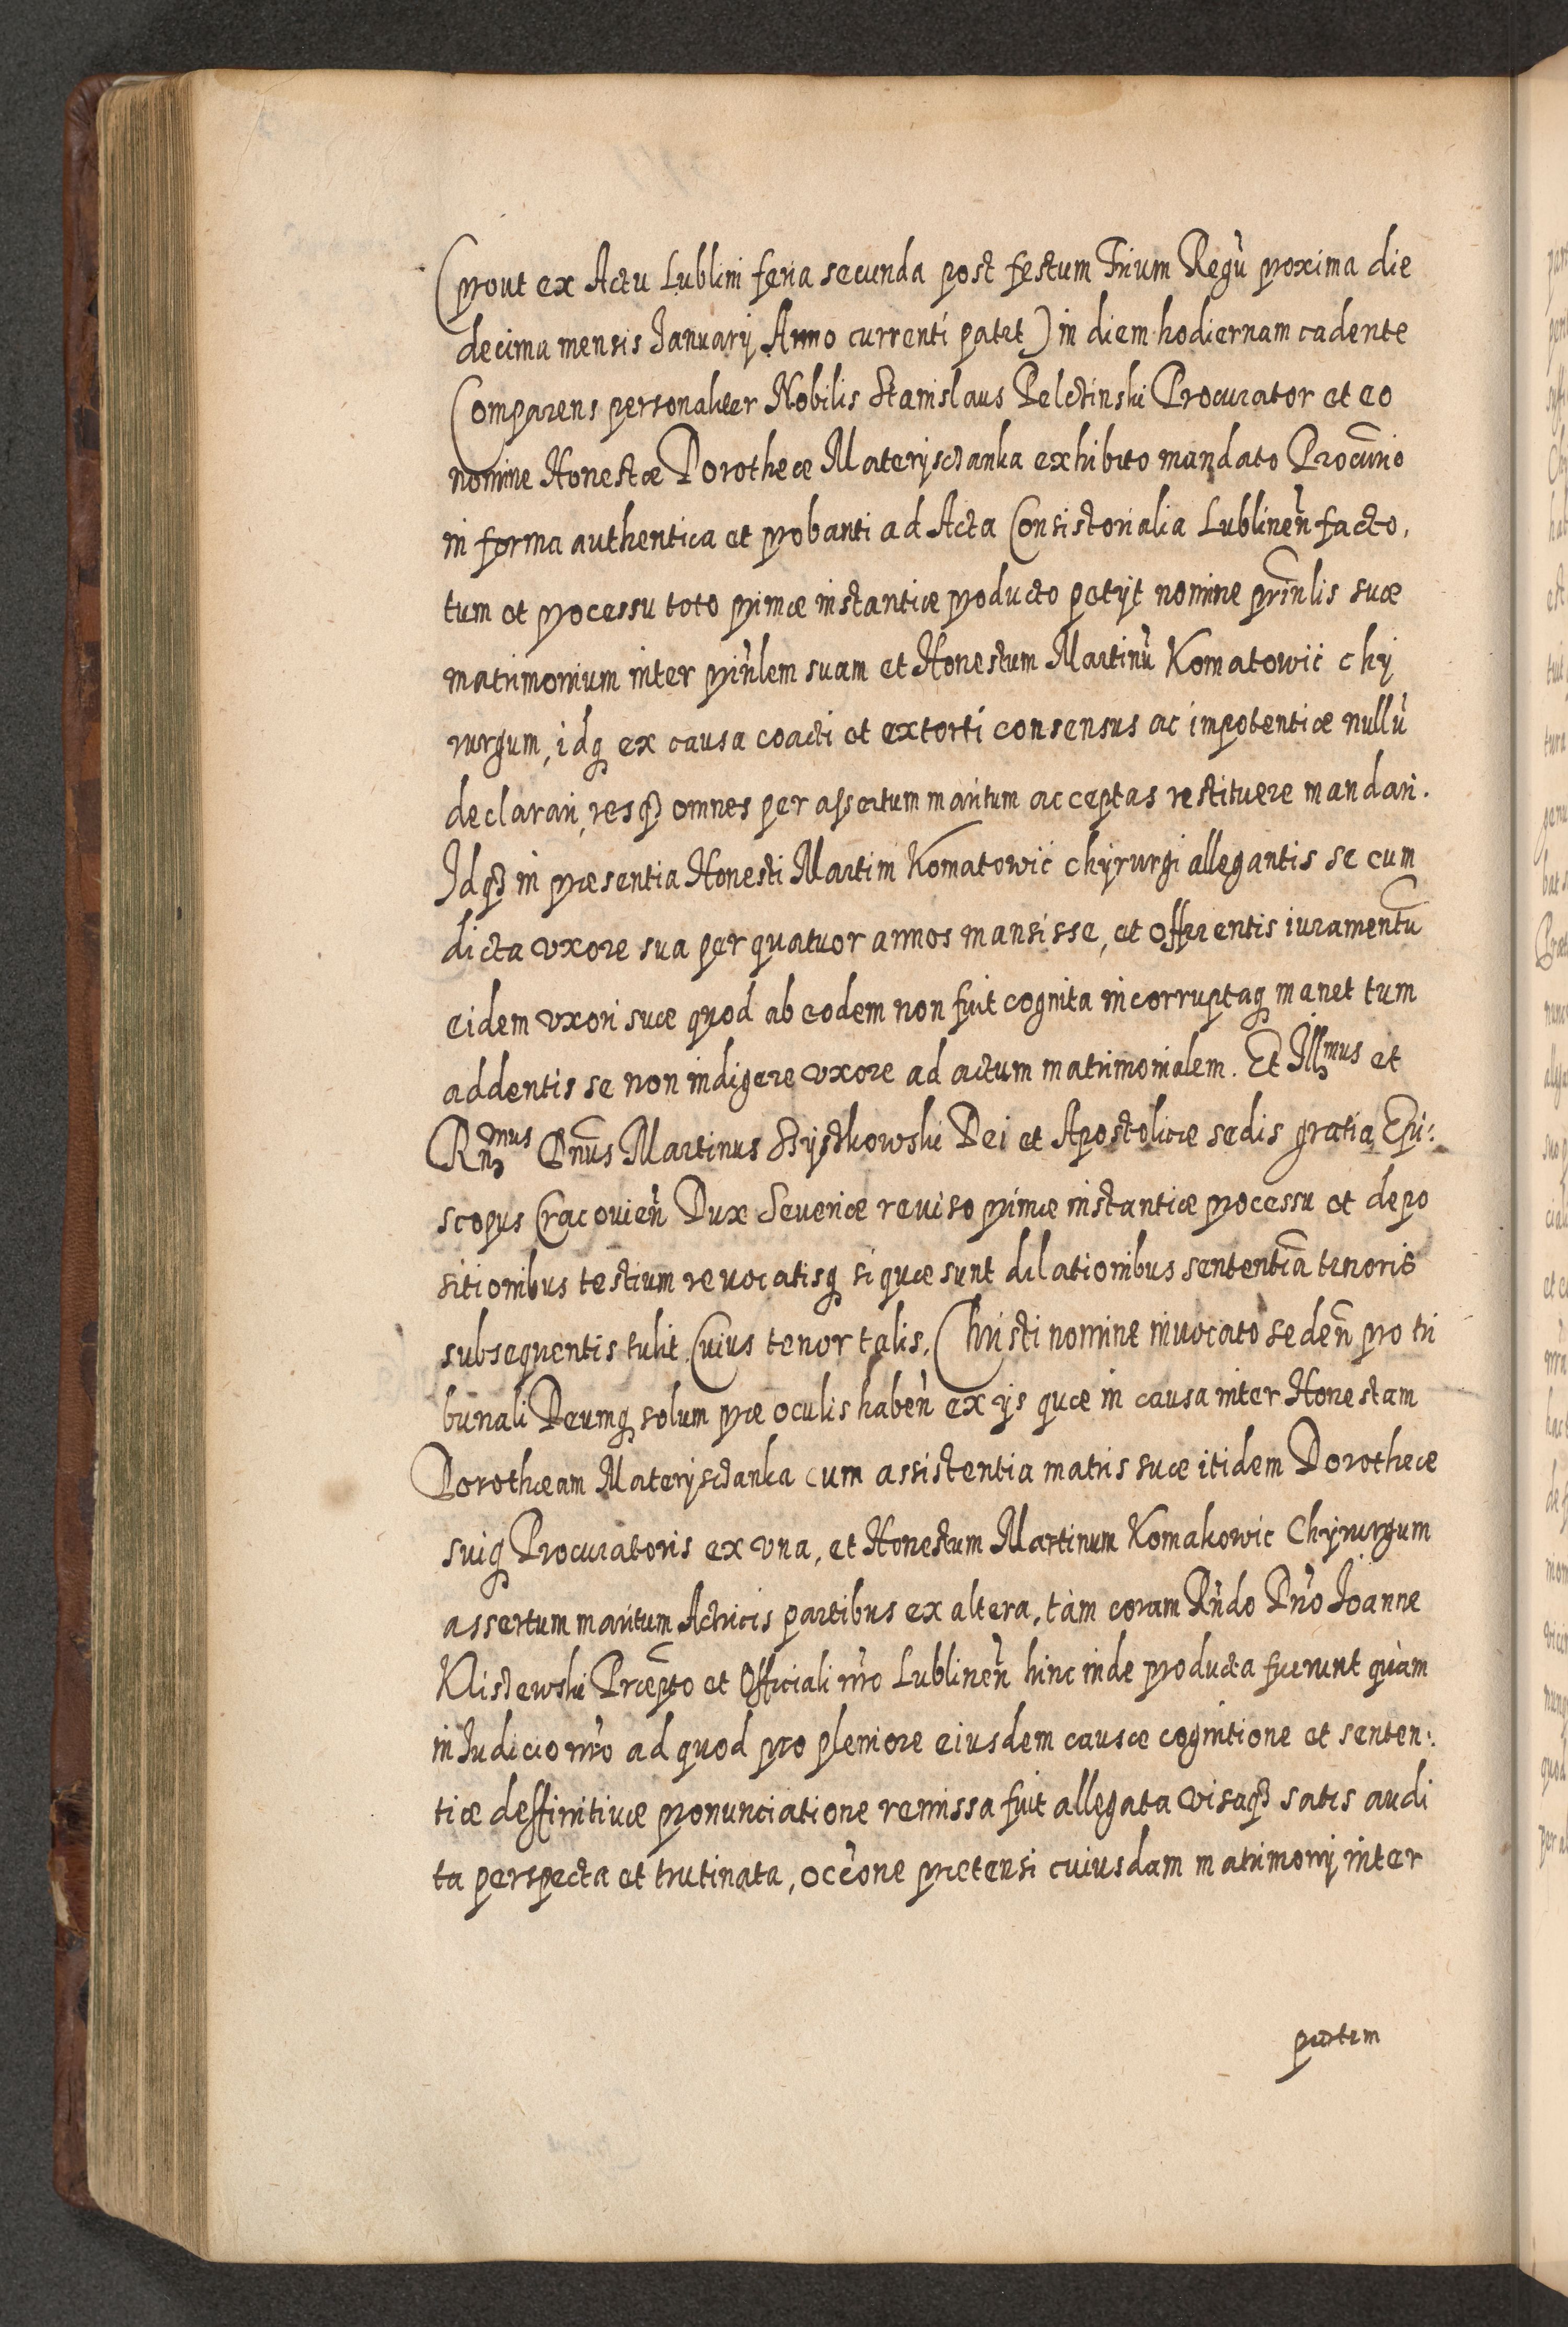 (prout ex Actu Lublini feria secunda post festum Trium Regū proxima die
decima mensis Januarij Anno currenti patet) in diem hodiernam cadente
Comparens personaliter Nobilis Stanislaus Pelczinski Procurator et eo
nomine Honestæ Dorotheæ Materijsczanka exhibito mandato Procūrio
in forma authentica et probanti ad Acta Consistorialia Lublinen̄ facto,
tum et processu toto primæ instantiæ producto petijt nomine prin̄lis suæ
matrimonium inter prin̄lem suam et Honestum Martinū Komatowic chy
rurgum, idq ex causa coacti et extorti consensus ac impotentiæ nullū
declarari, resq omnes per assertum maritum acceptas restituere mandari.
Idq in præsentia Honesti Martini Komatowic chyrurgi allegantis se cum
dicta vxore sua per quatuor annos mansisse, et offerentis iuramentū
eidem vxori suæ quod ab eodem non fuit cognita incorruptaq manet tum
addentis se non indigere vxore ad actum matrimonialem. Et Illmus et
Rn̄dmus Dn̄us Martinus Szyszkowski Dei et Apostolicæ sedis gratia Epi:
scopus Cracovien̄ Dux Severiæ reviso primæ instantiæ processu et depo
sitionibus testium revocatisq si quæ sunt dilationibus sententiā tenoris
subsequentis tulit. Cuius tenor talis, Christi nomine invocato seden̄ pro tri
bunali Deumq solum præ oculis haben̄ ex ijs quæ in causa inter Honestam
Dorotheam Materijsczanka cum assistentia matris suæ itidem Dorotheæ
suiq Procuratoris ex vna, et Honestum Martinum Komakowic Chyrurgum
assertum maritum Actricis partibus ex altera, tàm coram Rn̄do Dn̄o Joanne
Klisczewski Præpto et Officiali nr̄o Lublinen̄ hinc inde producta fuerunt quàm
in Judicio nr̄o ad quod pro pleniore eiusdem causæ cognitione et senten:
tiæ deffinitivæ pronunciatione remissa fuit allegata visaq satis audi
ta perspecta et trutinata, occ̄one prætensi cuiusdam matrimonij inter
partem